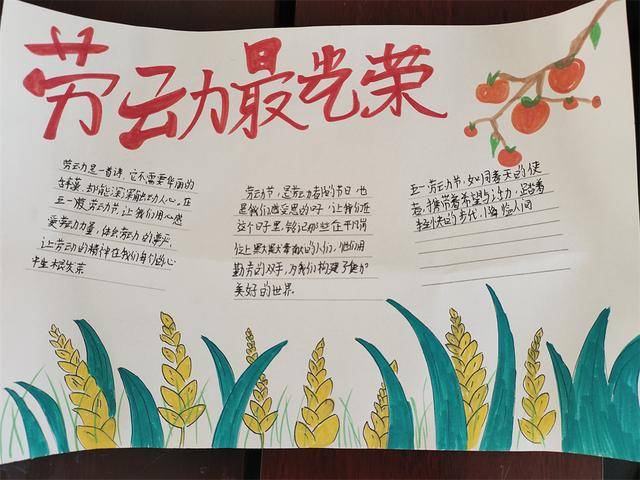 劳动力最光荣
劳动力是一首诗，它不需要华丽的
却能深深触动人心。在
五一劳动节，让我们用心感
受劳动力量，体会劳动的
让劳动的精神在我们每个的心
中生根发亲
劳动节，是劳动者的节日，也
是我们感受恩的日子，让我们在
这个日子里，铭记那些在平凡岗
位上默默奉献的人们，他们用
勤劳的双手，为我们构建了更加
美好的世界。
五一劳动节，如同春天的使
者，携带着希望与活力，踏着
轻快的步伐，降临人间